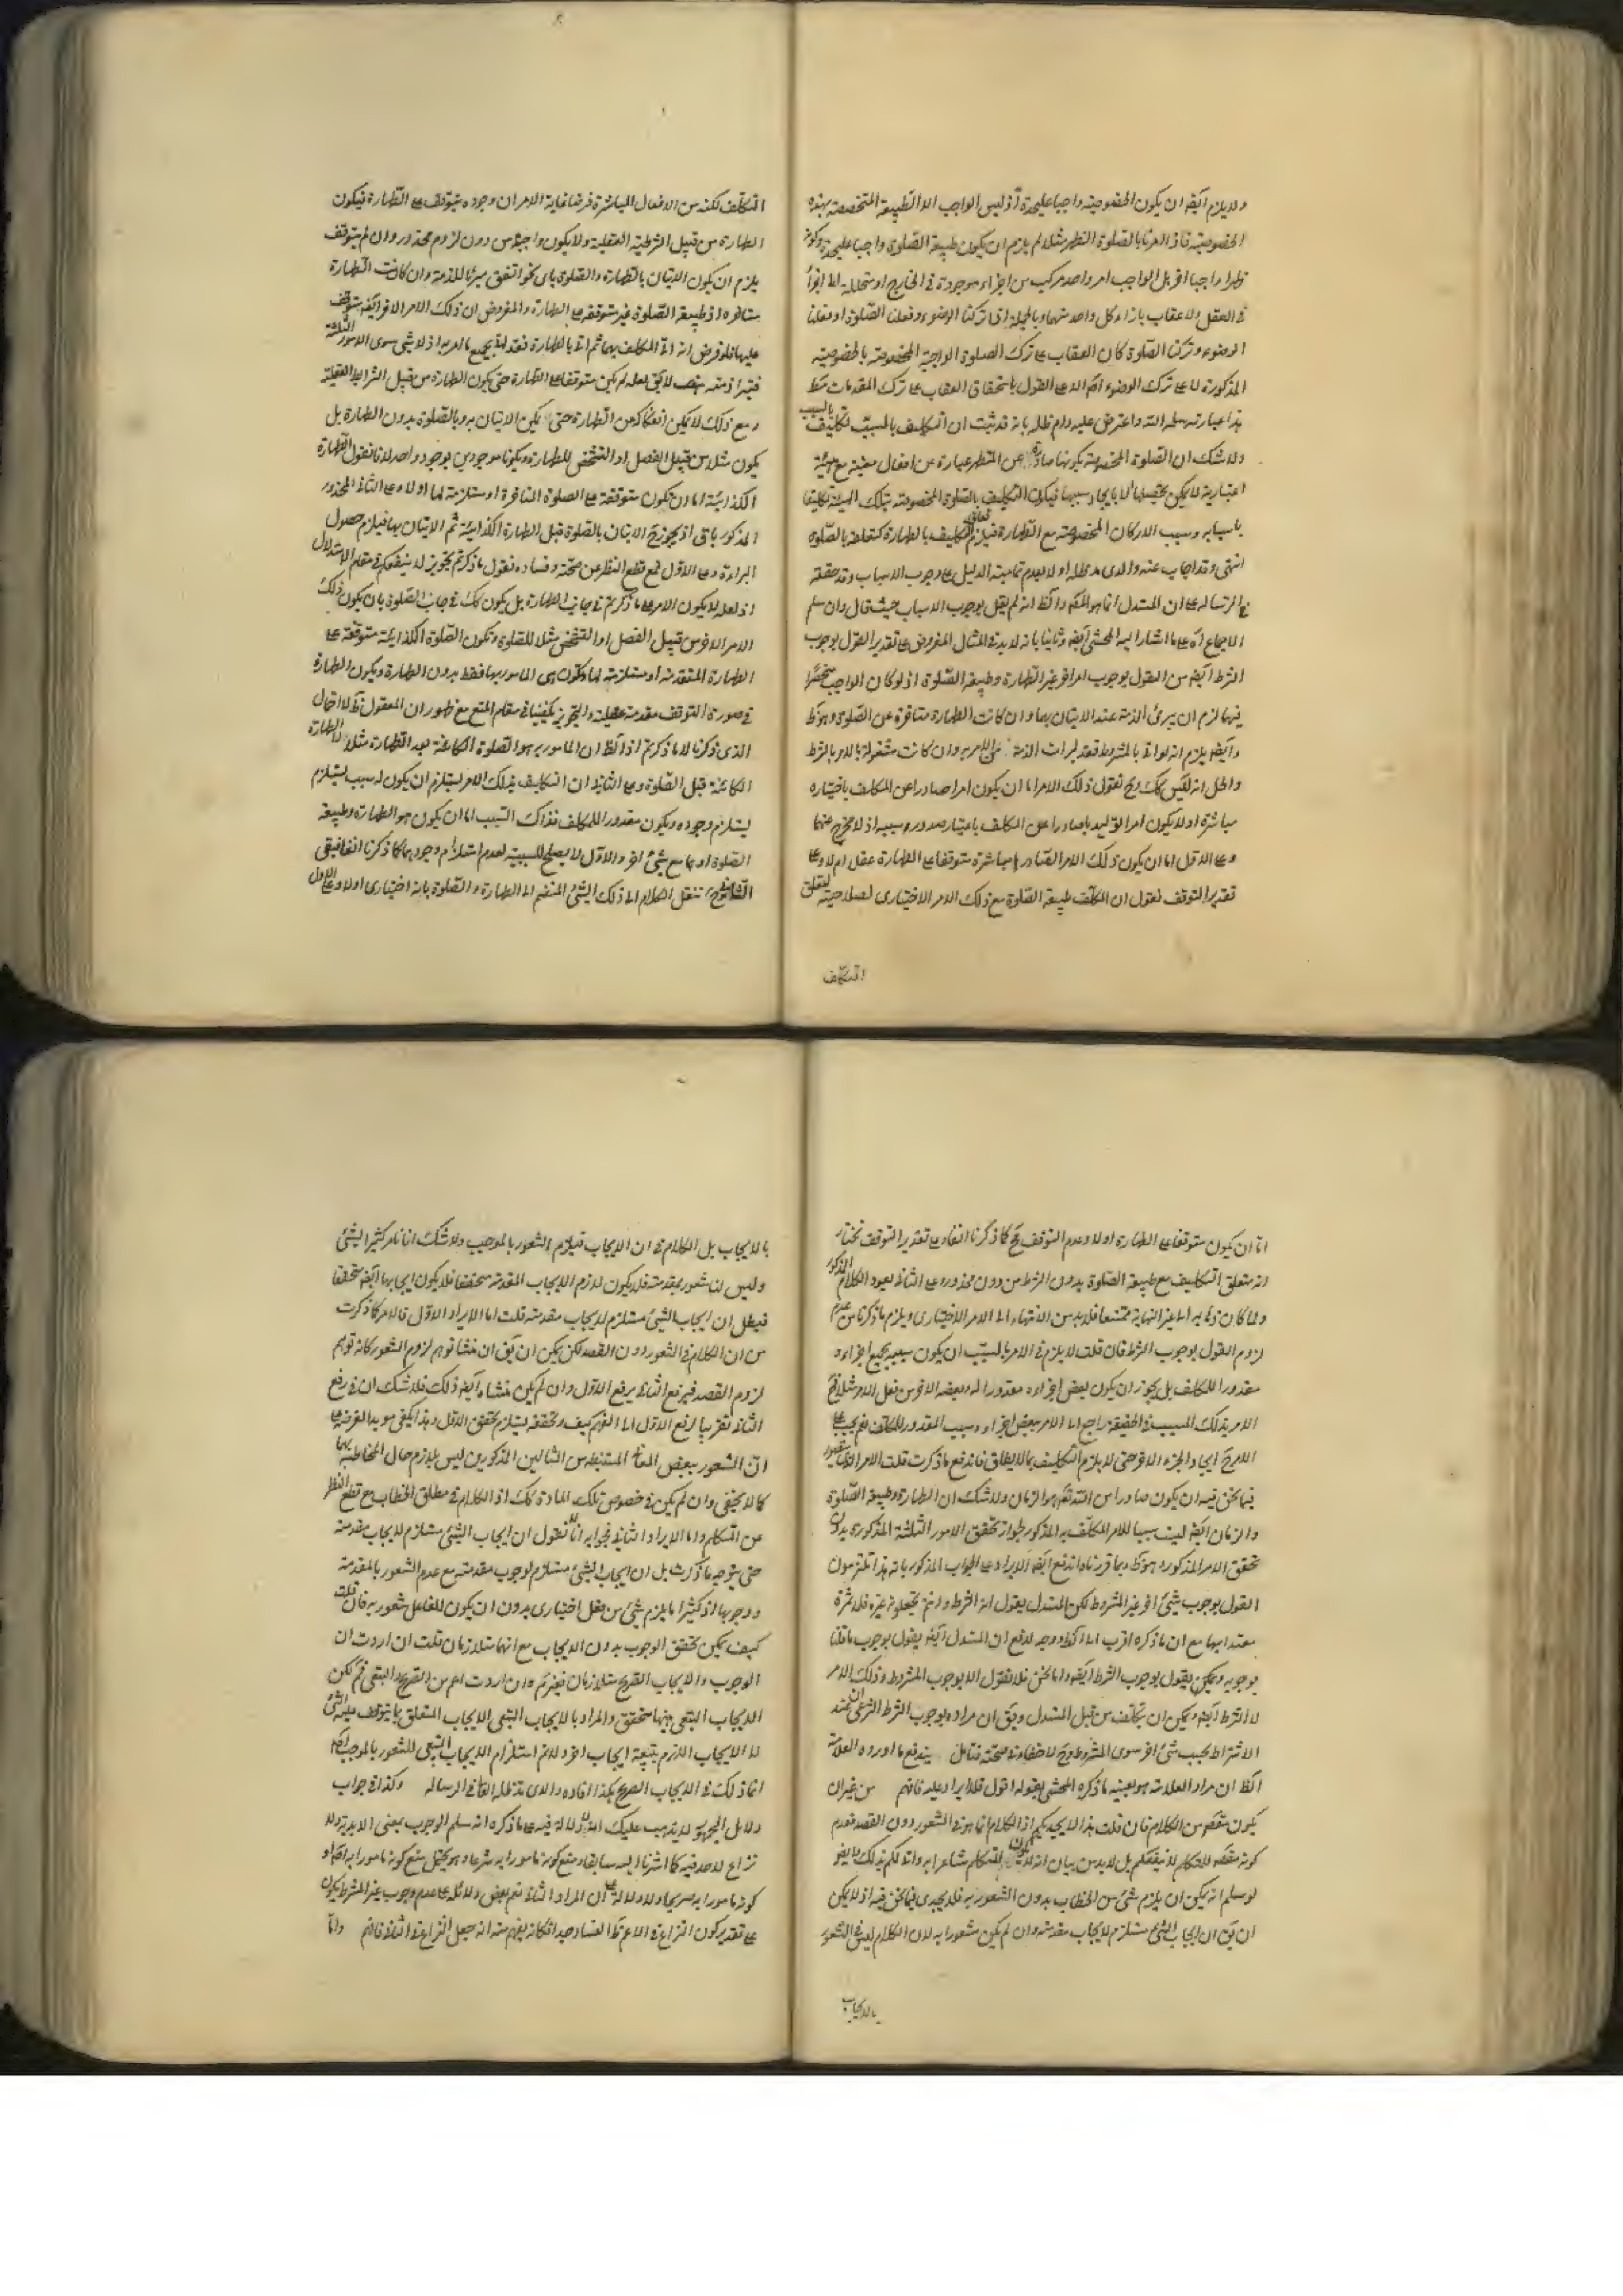 ولا يلزم ايضا ان يكون الخصوصية واجبا عليحدة اذ ليس الواجب الا الطبيعة المتخصصة بهذه
الخصوصية فاذا امرنا بالصلوة الظهر مثلا لم يلزم ان يكون طبيعة الصلوة واجبا عليحدة وكونه
ظهرا واجبا اخر بل الواجب امر واحد مركب من اجزاء موجودة في الخارج او متحللة اليها اجزاء
في العقل ولا عقاب بازاء كل واحد منهما وبالجملة اذا تركنا الوضوء وفعلنا الصلوة او فعلنا
الوضوء وتركنا الصلوة كان العقاب على ترك الصلوة الواجبة المخصوصة بالخصوصية
المذكورة لا على ترك الوضوء الا على القول باستحقاق العقاب على ترك المقدمات
هذا عبارته واعترض عليه دام ظله بانه قد ثبت ان التكليف بالمسبب تكليف بالسبب
ولا شك ان الصلوة المخصوصة بكونها صادرة عن المتطهر عبارة عن افعال معينة مع هيئة
اعتبارية لا يمكن تحصيلها الا بايجاد سببها فيكون التكليف بالصلوة المخصوصة بتلك الهيئة تكليفا
باسبابه وسبب الاركان المخصوصة مع الطهارة فيلزم تعلق التكليف بالطهارة كتعلقه بالصلوة
انتهى وقد اجاب عنه والدي مد ظله اولا بعدم تمامية الدليل على وجوب الاسباب وقد حققه
في الرسالة على ان المستدل انه لم يقل بوجوب الاسباب حيث قال وان سلم
الاجماع اه على ما اشار اليه المحشي ايضا وثانيا بانه لا بد في المثال المفروض على تقدير القول بوجوب
الشرط ايضا من القول بوجوب امر اخر غير الطهارة وطبيعة الصلوة اذ لو كان الواجب منحصرا
فيهما لزم ان يبرئ الذمة عند الاتيان بهما وان كانت الطهارة متاخرة عن الصلوة وهو
وايضا يلزم انه لو اتى بالمشروط فقد برات الذمة من الامر به وان كانت مشغولة بالامر بالشرط
والحال انه ليس كك وح نقول ذلك الامر اما ان يكون امرا صادرا عن المكلف باختياره
مباشرة او لا يكون امرا توليديا صادرا عن المكلف باعتبار صدور سببه اذ لا مخرج عنهما
وعلى الاول اما ان يكون ذلك الامر الصادر مباشرة متوقفا على الطهارة عقلا ام لا وعلى
تقدير التوقف نقول ان المكلف طبيعة الصلوة مع ذلك الامر الاختياري لصلاحيته لتعلق
التكليف
التكليف لكنه من الافعال المباشرة فرضا غاية الامر ان وجوده يتوقف على الطهارة فيكون
الطهارة من قبيل الشرطية العقلية ولا يكون واجبة من دون لزوم محذور وان لم يتوقف
يلزم ان يكون الاتيان بالطهارة والصلوة باى نحو اتفق مبرئا للذمة وان كانت الطهارة
متاخرة اذ طبيعة الصلوة غير متوقفة على الطهارة والمفروض ان ذلك الامر الاخر ايضا متوقف
عليها فلو فرض انه اتى المكلف بهما ثم اتى بالطهارة فقد اتى بجميع ما امر به اذ لا شيء سوى الامور الثلثة
فتبرا ذمته لا يق لعله لم يكن متوقفا على الطهارة حتى يكون الطهارة من قبيل الشرايط العقلية
ومع ذلك لا يمكن انفكاكه عن الطهارة حتى يمكن الاتيان به وبالصلوة بدون الطهارة بل
يكون مثلا من قبيل الفصل او التشخص للطهارة ويكونا موجودين بوجود واحد لانا نقول الطهارة
الكذائية اما ان تكون متوقفة على الصلوة المتاخرة او مستلزمة لها او لا وعلى الثاني المحذور
المذكور باق اذ يجوز ح الاتيان بالصلوة قبل الطهارة الكذائية ثم الاتيان بها فيلزم حصول
البراءة وعلى الاول فمع قطع النظر عن صحته وفساده نقول ما ذكرتم تجويز لا ينفعكم في مقام الاستدلال
اذ لعله لا يكون الامر على ما ذكرتم في جانب الطهارة بل يكون كك في جانب الصلوة بان يكون ذلك
الامر الاخر من قبيل الفصل او التشخص مثلا للصلوة وتكون الصلوة الكذائية متوقفة على
الطهارة المتقدمة او مستلزمة لها وتكون هى المامور بها فقط بدون الطهارة ويكون الطهارة
في صورة التوقف مقدمة عقلية والتجويز يكفينا في مقام المنع مع ظهور ان المعقول احتمال
الذي ذكرنا لا ما ذكرتم اذ الظ ان المامور به هو الصلوة الكائنة بعد الطهارة مثلا لا الطهارة
الكائنة قبل الصلوة وعلى الثاني ان التكليف بذلك الامر يستلزم ان يكون له سبب يستلزم
يستلزم وجوده ويكون مقدورا للمكلف فذاك السبب اما ان يكون هو الطهارة وطبيعة
الصلوة او هما مع شيء اخر والاول لا يصلح للسببية لعدم استلزام وجودهما كما ذكرنا انفا فبقى
الثاني وح ننقل الكلام الى ذلك الشيء المنضم الى الطهارة والصلوة بانه اختياري او لا وعلى الاول
اما ان يكون متوقفا على الطهارة او لا وعدم التوقف ح كما ذكرنا انفا وعلى تقدير التوقف نختار
انه متعلق التكليف مع طبيعة الصلوة بدون الشرط من دون محذور وعلى الثاني يعود الكلام المذكور
ولما كان ذهابه الى غير النهاية ممتنعا فلا بد من الانتهاء الى الامر الاختياري ويلزم ما ذكرنا من عدم
لزوم القول بوجوب الشرط فان قلت لا يلزم في الامر بالمسبب ان يكون سببه بجميع اجزاءه
مقدورا للمكلف بل يجوز ان يكون بعض اجزاءه مقدورا له وبعضه الاخر من فعل الامر مثلا فح
الامر بذلك المسبب في الحقيقة راجع الى الامر ببعض اجزاء سببه المقدور للمكلف نعم يجب على
الامر ح ايجاد الجزء الاخر حتى لا يلزم التكليف بما لا يطاق فاندفع ما ذكرت قلت الامر الاخر
فيما نحن فيه ان يكون صادرا من الله تعالى هو الزمان ولا شك ان الطهارة وطبيعة الصلوة
والزمان ايضا ليست سببا للامر المكلف به المذكور لجواز تحقق الامور الثلثة المذكورة بدون
تحقق الامر المذكور وبما قررناه اندفع ايضا الايراد على الجواب المذكور بانه هذا تلتزمون
القول بوجوب شيء اخر غير المشروط لكن المستدل يقول انه الشرط وانتم تجعلونه غيره فلا ثمرة
معتدا بها مع ان ما ذكره اقرب الى الظ ووجه الدفع ان المستدل ايضا يقول بوجوب ما قلنا
بوجوبه ويقول بوجوب الشرط ايضا واما نحن فلا نقول الا بوجوب المشروط وذلك الامر
لا الشرط ايضا ويمكن ان يتكلف من قبل المستدل ويق ان مراده بوجوب الشرط الشرعي ان عند
الاشتراط يجب شيء اخر سوى المشروط وح لا خفاء في صحته فتامل يندفع ما اورده العلامة
الظ ان مراد العلامة هو بعينه ما ذكره المحشي بقوله اقول فلا ايراد عليه فافهم من غير ان
يكون مقصود من الكلام فان قلت هذا لا يجديكم اذ الكلام انما هو في الشعور دون القصد فعدم
كونه مقصد للمتكلم لا ينفعكم بل لا بد من بيان انه لا يكون المتكلم شاعرا به وانى لكم بذلك ايضا
لو سلم انه يمكن ان يلزم شيء من الخطاب بدون الشعور به فلا يجدي فيما نحن فيه اذ لا يمكن
ان يق ان ايجاب الشيء مستلزم لايجاب مقدمته وان لم يكن مشعورا به لان الكلام ليس في الشعور
بالايجاب
بالايجاب بل الكلام في ان الايجاب فيلزم الشعور بالموجب ولا شك انا نامر كثيرا بشيء
وليس لنا شعور بمقدمته فلا يكون لازم الايجاب المقدمة متحققا فلا يكون ايجابها ايضا متحققا
فبطل ان ايجاب الشيء مستلزم لايجاب مقدمته قلت اما الايراد الاول فالامر كما ذكرت
من ان الكلام في الشعور دون القصد لكن يمكن ان يق ان منشا توهم لزوم الشعور كانه توهم
لزوم القصد فبرفع الثاني يرفع الاول وان لم يكن منشاه ايضا ذلك فلا شك ان في رفع
الثاني تقريبا لرفع الاول الى الفهم كيف وتحققه يستلزم تحقق الاول وهذا يكفى مويدا لغرضه على
ان الشعور ببعض المعاني المستنبطة من المثالين المذكورين ليس بلازم حال المخاطبة بهما
كما لا يخفى وان لم يكن في خصوص تلك المادة كك اذ الكلام في مطلق الخطاب مع قطع النظر
عن المتكلم واما الايراد الثاني فجوابه انا لا نقول ان ايجاب الشيء مستلزم لايجاب مقدمته
حتى يتوجه ما ذكرت بل ان ايجاب الشيء مستلزم لوجوب مقدمته مع عدم الشعور بالمقدمة
ووجوبها اذ كثيرا ما يلزم شيء من فعل اختياري بدون ان يكون للفاعل شعور به فان قلت
كيف يمكن تحقق الوجوب بدون الايجاب مع انهما متلازمان قلت ان اردت ان
الوجوب والايجاب الصريح متلازمان فغير مسلم وان اردت اعم من الصريح والتبعي فمسلم لكن
الايجاب التبعي فيها متحقق والمراد بالايجاب التبعي الايجاب المتعلق بما يتوقف عليه الشيء
لا الايجاب اللازم بتبعية ايجاب اخر ولا نم استلزام الايجاب التبعي للشعور بالموجب
انما ذلك في الايجاب الصريح هكذا افاده والدي مد ظله العالي في الرسالة وكذا في جواب
دلائل لا يذهب عليك انه لا دلالة فيه على ما ذكره انه سلم الوجوب بمعنى الابدية ولا
نزاع لاحد فيه كما اشرنا اليه سابقا ومنع كونه مامورا به شرعا وهو يحتمل منع كونه مامورا به اصلا او
كونه مامورا به صريحا ولا دلالة على ان المراد الثاني نعم بعض دلائله على عدم وجوب غير الشرط يكون
على تقدير كون النزاع في الاعم ظ الفساد جدا فكانه يفهم منه انه جعل النزاع في الثاني فافهم واما